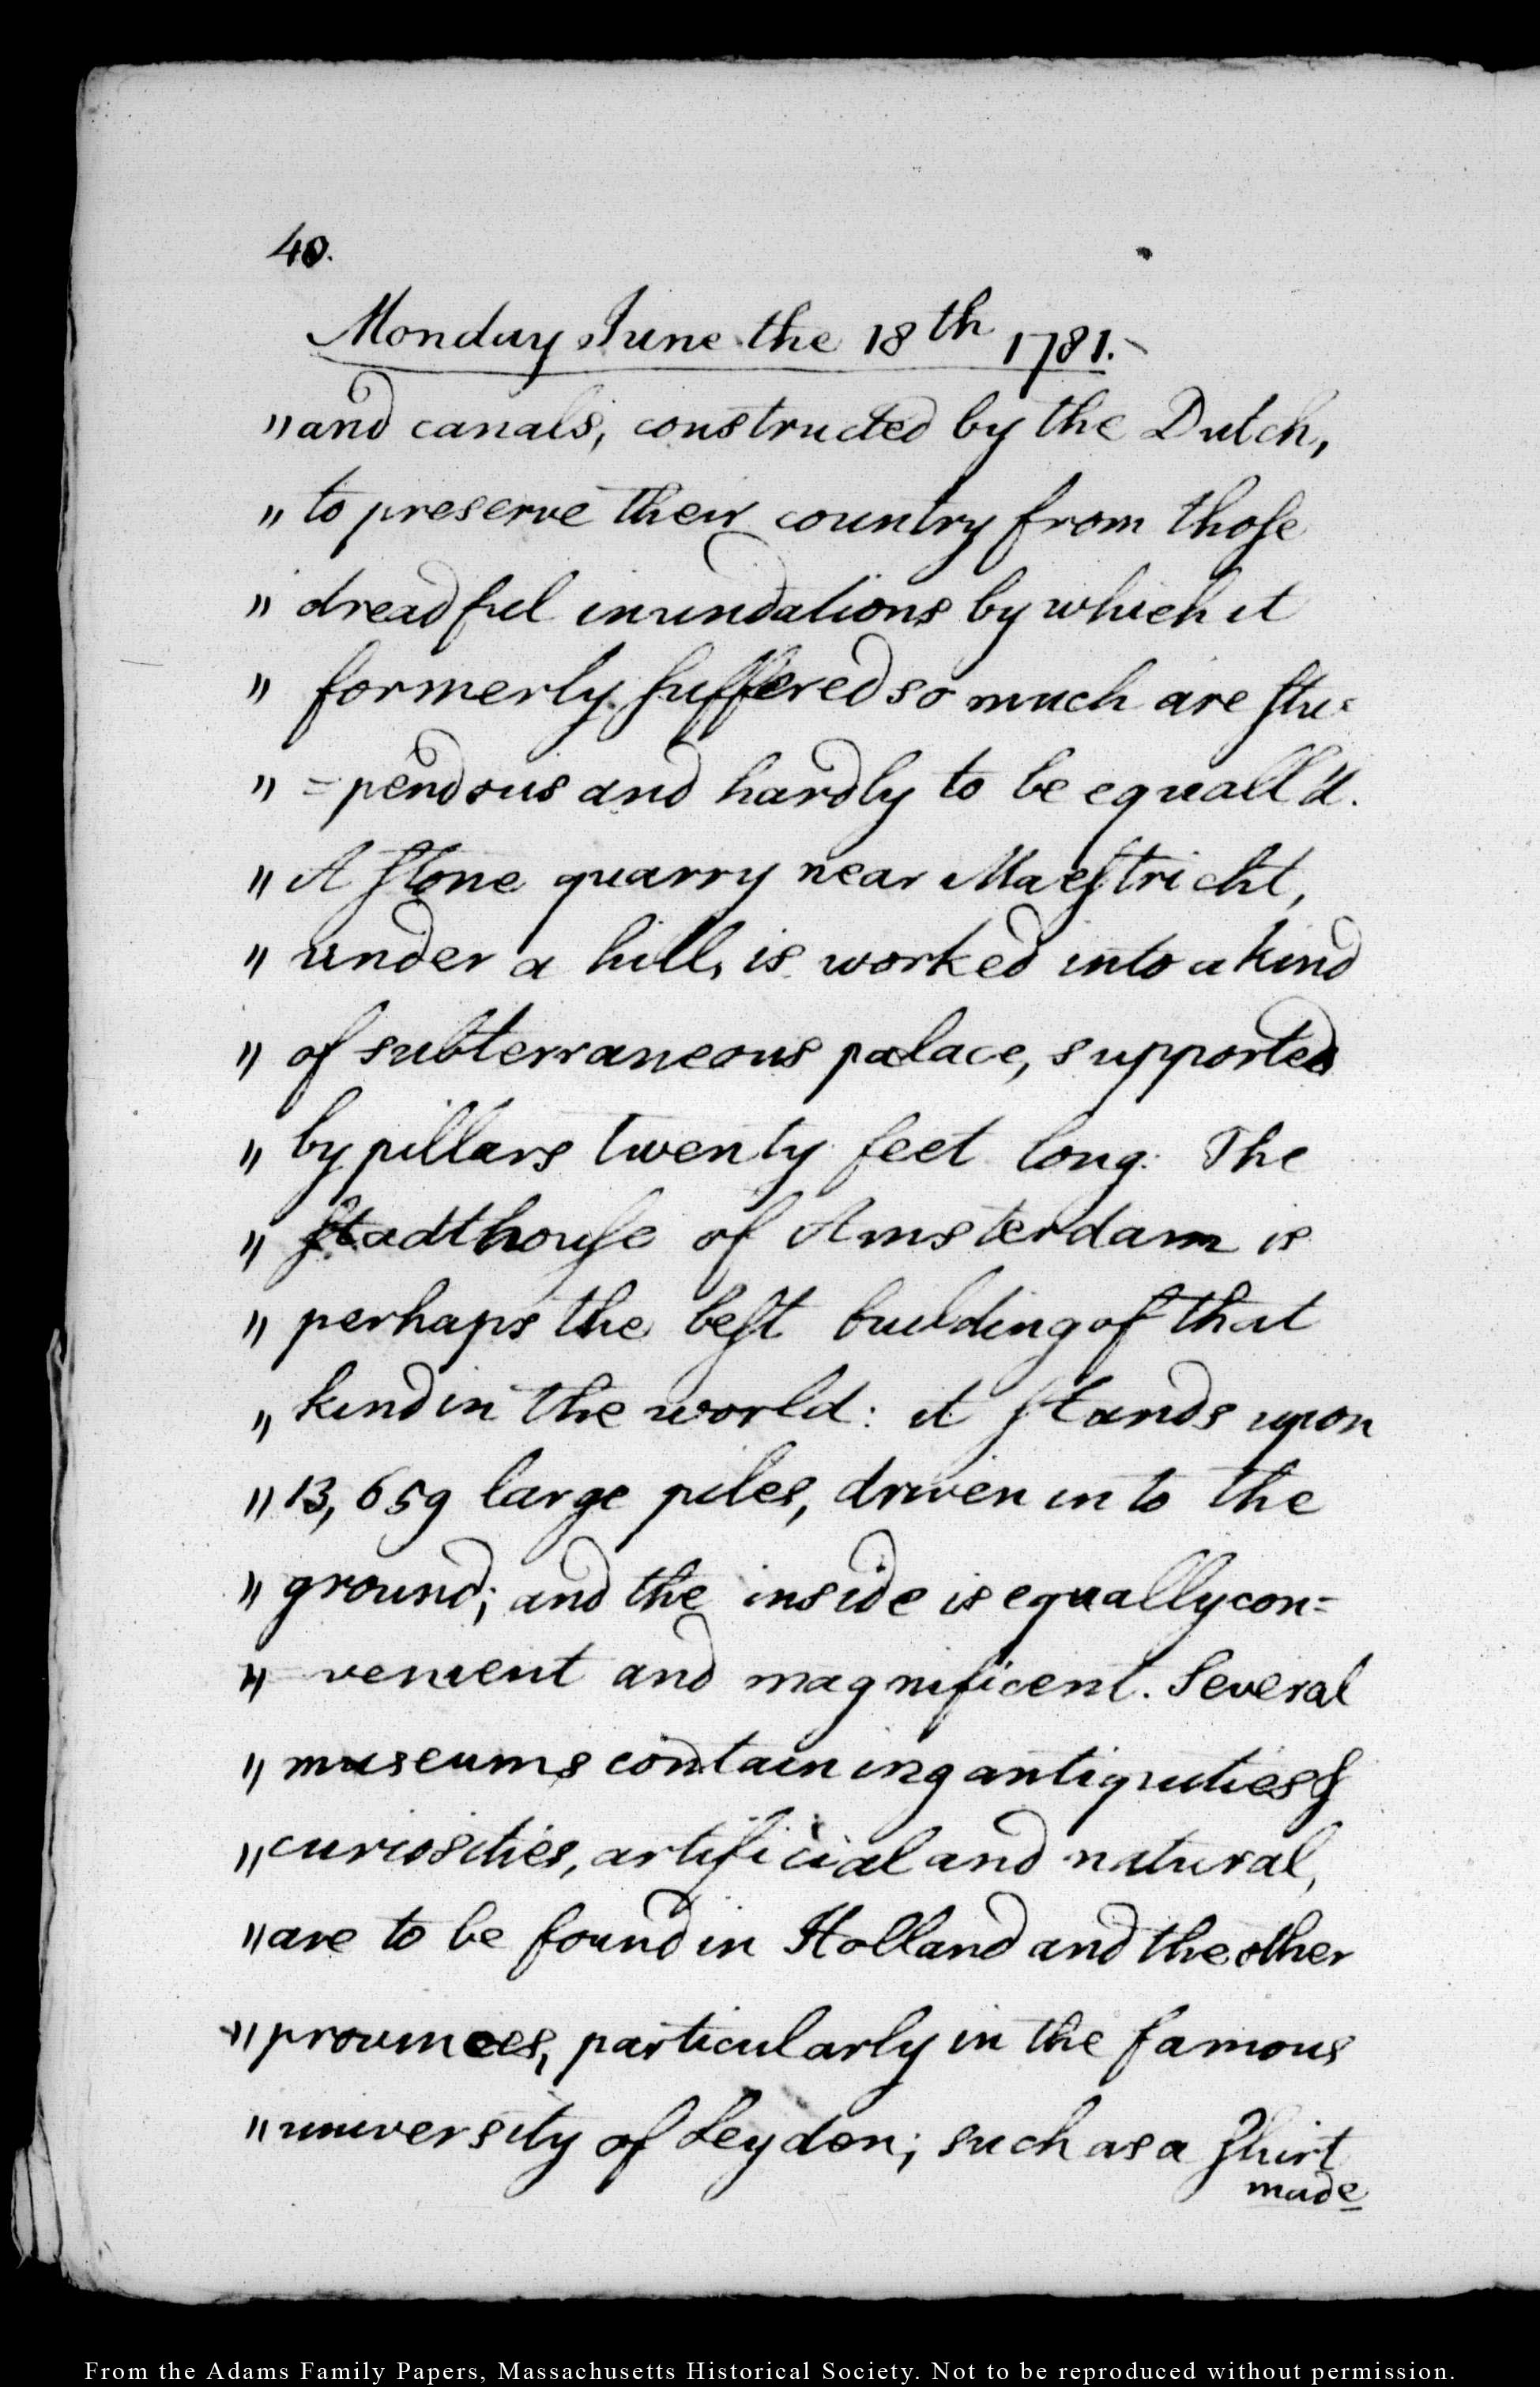 40.
Monday June the 18th 1781.-
"and canals, constructed by the Dutch,
" to preserve their country from those
" dreadful inundations by which it
" formerly suffered so much are stu=
" =pendous and hardly to be equall'd.
" A stone quarry near Maestricht,
" under a hill, is worked into a kind
" of subterraneous palace, supported
" by pillars twenty feet long. The
" stadthouse of Amsterdam is
" perhaps the best building of that
" kind in the world: it stands upon
" 13,659 large piles, driven into the
" ground; and the inside is equally con=
" =venient and magnificent. Several
" museums containing antiquities &
" curiosities, artificial and natural,
" are to be found in Holland and the other
" provinces, particularly in the famous
" university of Leyden; such as a shirt
made
From the Adams Family Papers, Massachusetts Historical Society. Not to be reproduced without permission.